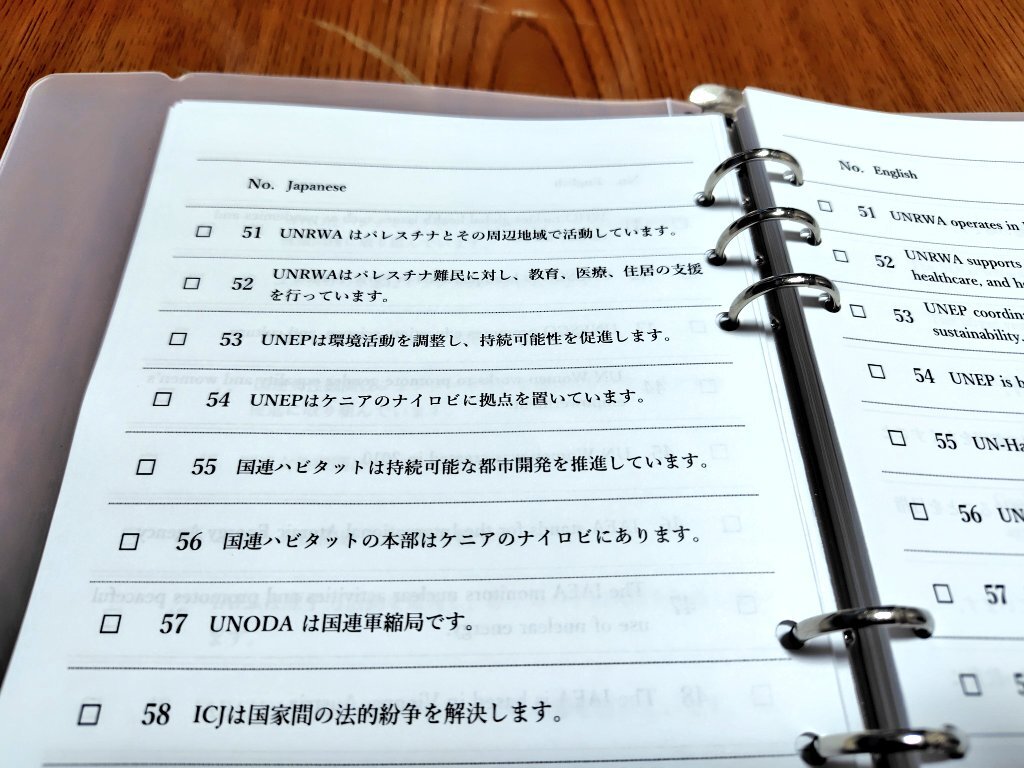 No. Japanese
51 UNRWA はパレスチナとその周辺地域で活動しています。
52 UNRWAはパレスチナ難民に対し、教育、医療、住居の支援
を行っています。
53 UNEPは環境活動を調整し、持続可能性を促進します。
54 UNEPはケニアのナイロビに拠点を置いています。
55 国連ハビタットは持続可能な都市開発を推進しています。
56 国連ハビタットの本部はケニアのナイロビにあります。
57 UNODA は国連軍縮局です。
58 ICJは国家間の法的紛争を解決します。
No. English
51 UNRWA operates in
52 UNRWA supports
healthcare, and
53 UNEP
sustainability.
54 UNEP is
55
56
57